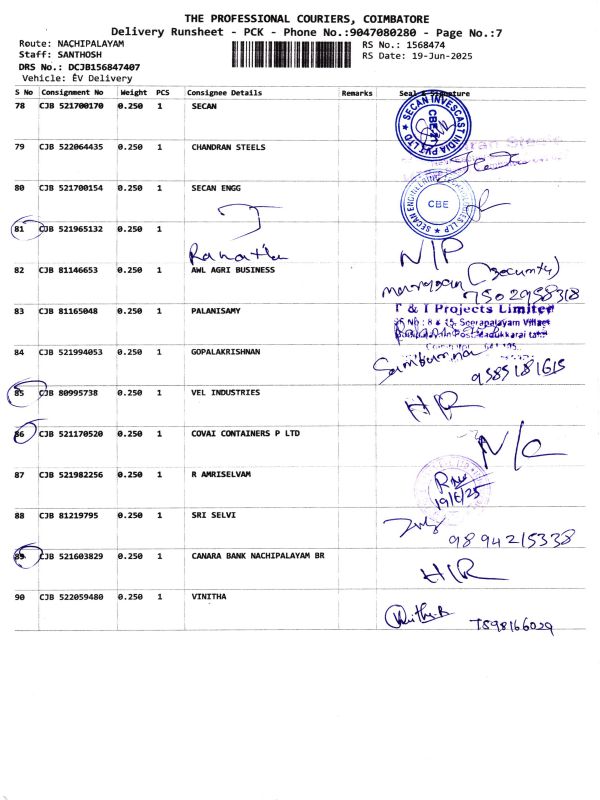 THE PROFESSIONAL COURIERS, COIMBATORE
Delivery Runsheet - PCK - Phone No.:9047080280 - Page No.:7
Route: NACHIPALAYAM
Staff: SANTHOSH
DRS No.: DCJB156847407
Vehicle: EV Delivery
RS No.: 1568474
RS Date: 19-Jun-2025
S No Consignment No Weight PCS Consignee Details Remarks Seal & Signature
78 CJB 521700170 0.250 1 SECAN
SECAN INVESCAST INDIA PVT LTD
CBE
79 CJB 522064435 0.250 1 CHANDRAN STEELS
80 CJB 521700154 0.250 1 SECAN ENGG
SECAN ENGINEERING TECHNOLOGIES LLP
CBE
81 CJB 521965132 0.250 1 N/P
82 CJB 81146653 0.250 1 AWL AGRI BUSINESS
(Security)
7502958318
83 CJB 81165048 0.250 1 PALANISAMY
T & T Projects Limited
SF No : 8 & 15, Seerapalayam Village
84 CJB 521994053 0.250 1 GOPALAKRISHNAN
9585181615
85 CJB 80995738 0.250 1 VEL INDUSTRIES H/R
86 CJB 521170520 0.250 1 COVAI CONTAINERS P LTD N/C
87 CJB 521982256 0.250 1 R AMRISELVAM
19/6/25
88 CJB 81219795 0.250 1 SRI SELVI
9894215338
89 CJB 521603829 0.250 1 CANARA BANK NACHIPALAYAM BR H/R
90 CJB 522059480 0.250 1 VINITHA
7598166029